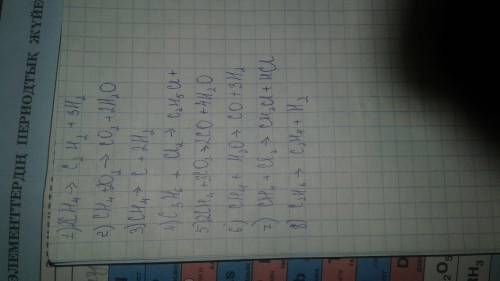 ЭЛЕМЕНТТЕРДІҢ ПЕРИОДТЫҚ ЖҮЙЕ
1) 2CH₄ → C₂H₂ + 3H₂
2) CH₄ + 2O₂ → CO₂ + 2H₂O
3) CH₄ → C + 2H₂
4) C₂H₆ + Cl₂ → C₂H₅Cl +
5) 2CH₄ + 3O₂ → 2CO + 4H₂O
6) CH₄ + H₂O → CO + 3H₂
7) CH₄ + Cl₂ → CH₃Cl + HCl
8) C₂H₆ → C₂H₄ + H₂
R₂O₅
RH₃